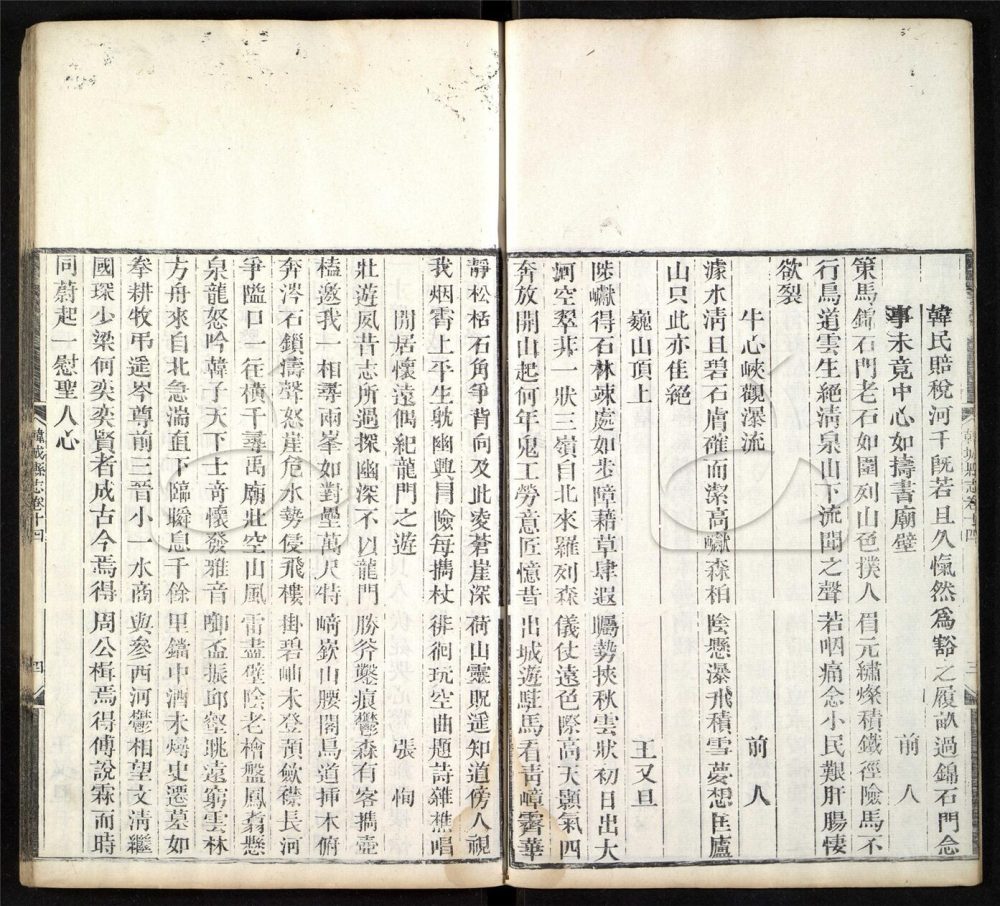 韓民賠稅河干旣若且久愾然爲豁之履畝過錦石門念
事未竟中心如擣書廟壁　前人
策馬錦石門老石如圍列山色撲人眉元繡燦積鐵徑險馬不
行鳥道雲生絕淸泉山下流聞之聲若咽痛念小民艱肝腸悽
欲裂
牛心峽觀瀑流　前人
澽水淸且碧石膚確而潔高巘森柏陰懸瀑飛積雪夢想匡廬
山只此亦隹絕
巍山頂上　王又旦
陟巘得石林竦處如步障藉草肆遐矚勢挾秋雲狀初日出大
河空翠非一狀三嶺自北來羅列森儀仗遠色際高天顥氣四
奔放開山起何年鬼工勞意匠憶昔出城遊駐馬看靑嶂霽華
靜松栝石角爭背向及此凌蒼崖深荷山靈貺遥知道傍人視
我烟霄上平生躭幽興冐險每攜杖徘徊玩空曲題詩雜樵唱
閒居懷遠偶紀龍門之遊　張恂
壯遊夙昔志所過探幽深不以龍門勝斧鑿痕鬱森有客攜壺
榼邀我一相尋兩峯如對壘萬尺特崎嶔山腰閣鳥道挿木俯
奔涔石鎖濤聲怒崖危水勢侵飛樓掛碧岫未登預歛襟長河
爭隘口一往橫千尋禹廟壯空山風雷盡壁陰老檜盤鳳翥懸
泉龍怒吟韓子天下士奇懷發雅音啣盃振邱壑眺遠窮雲林
方舟來自北急湍直下臨瞬息千餘里鐺中酒未燖史遷墓如
拳耕牧弔遥岑尊前三晉小一水商與參西河鬱相望文淸繼
國琛少梁何奕奕賢者成古今焉得周公楫焉得傅說霖而時
同蔚起一慰聖人心
韓城縣志卷十四
三
韓城縣志卷十四
四